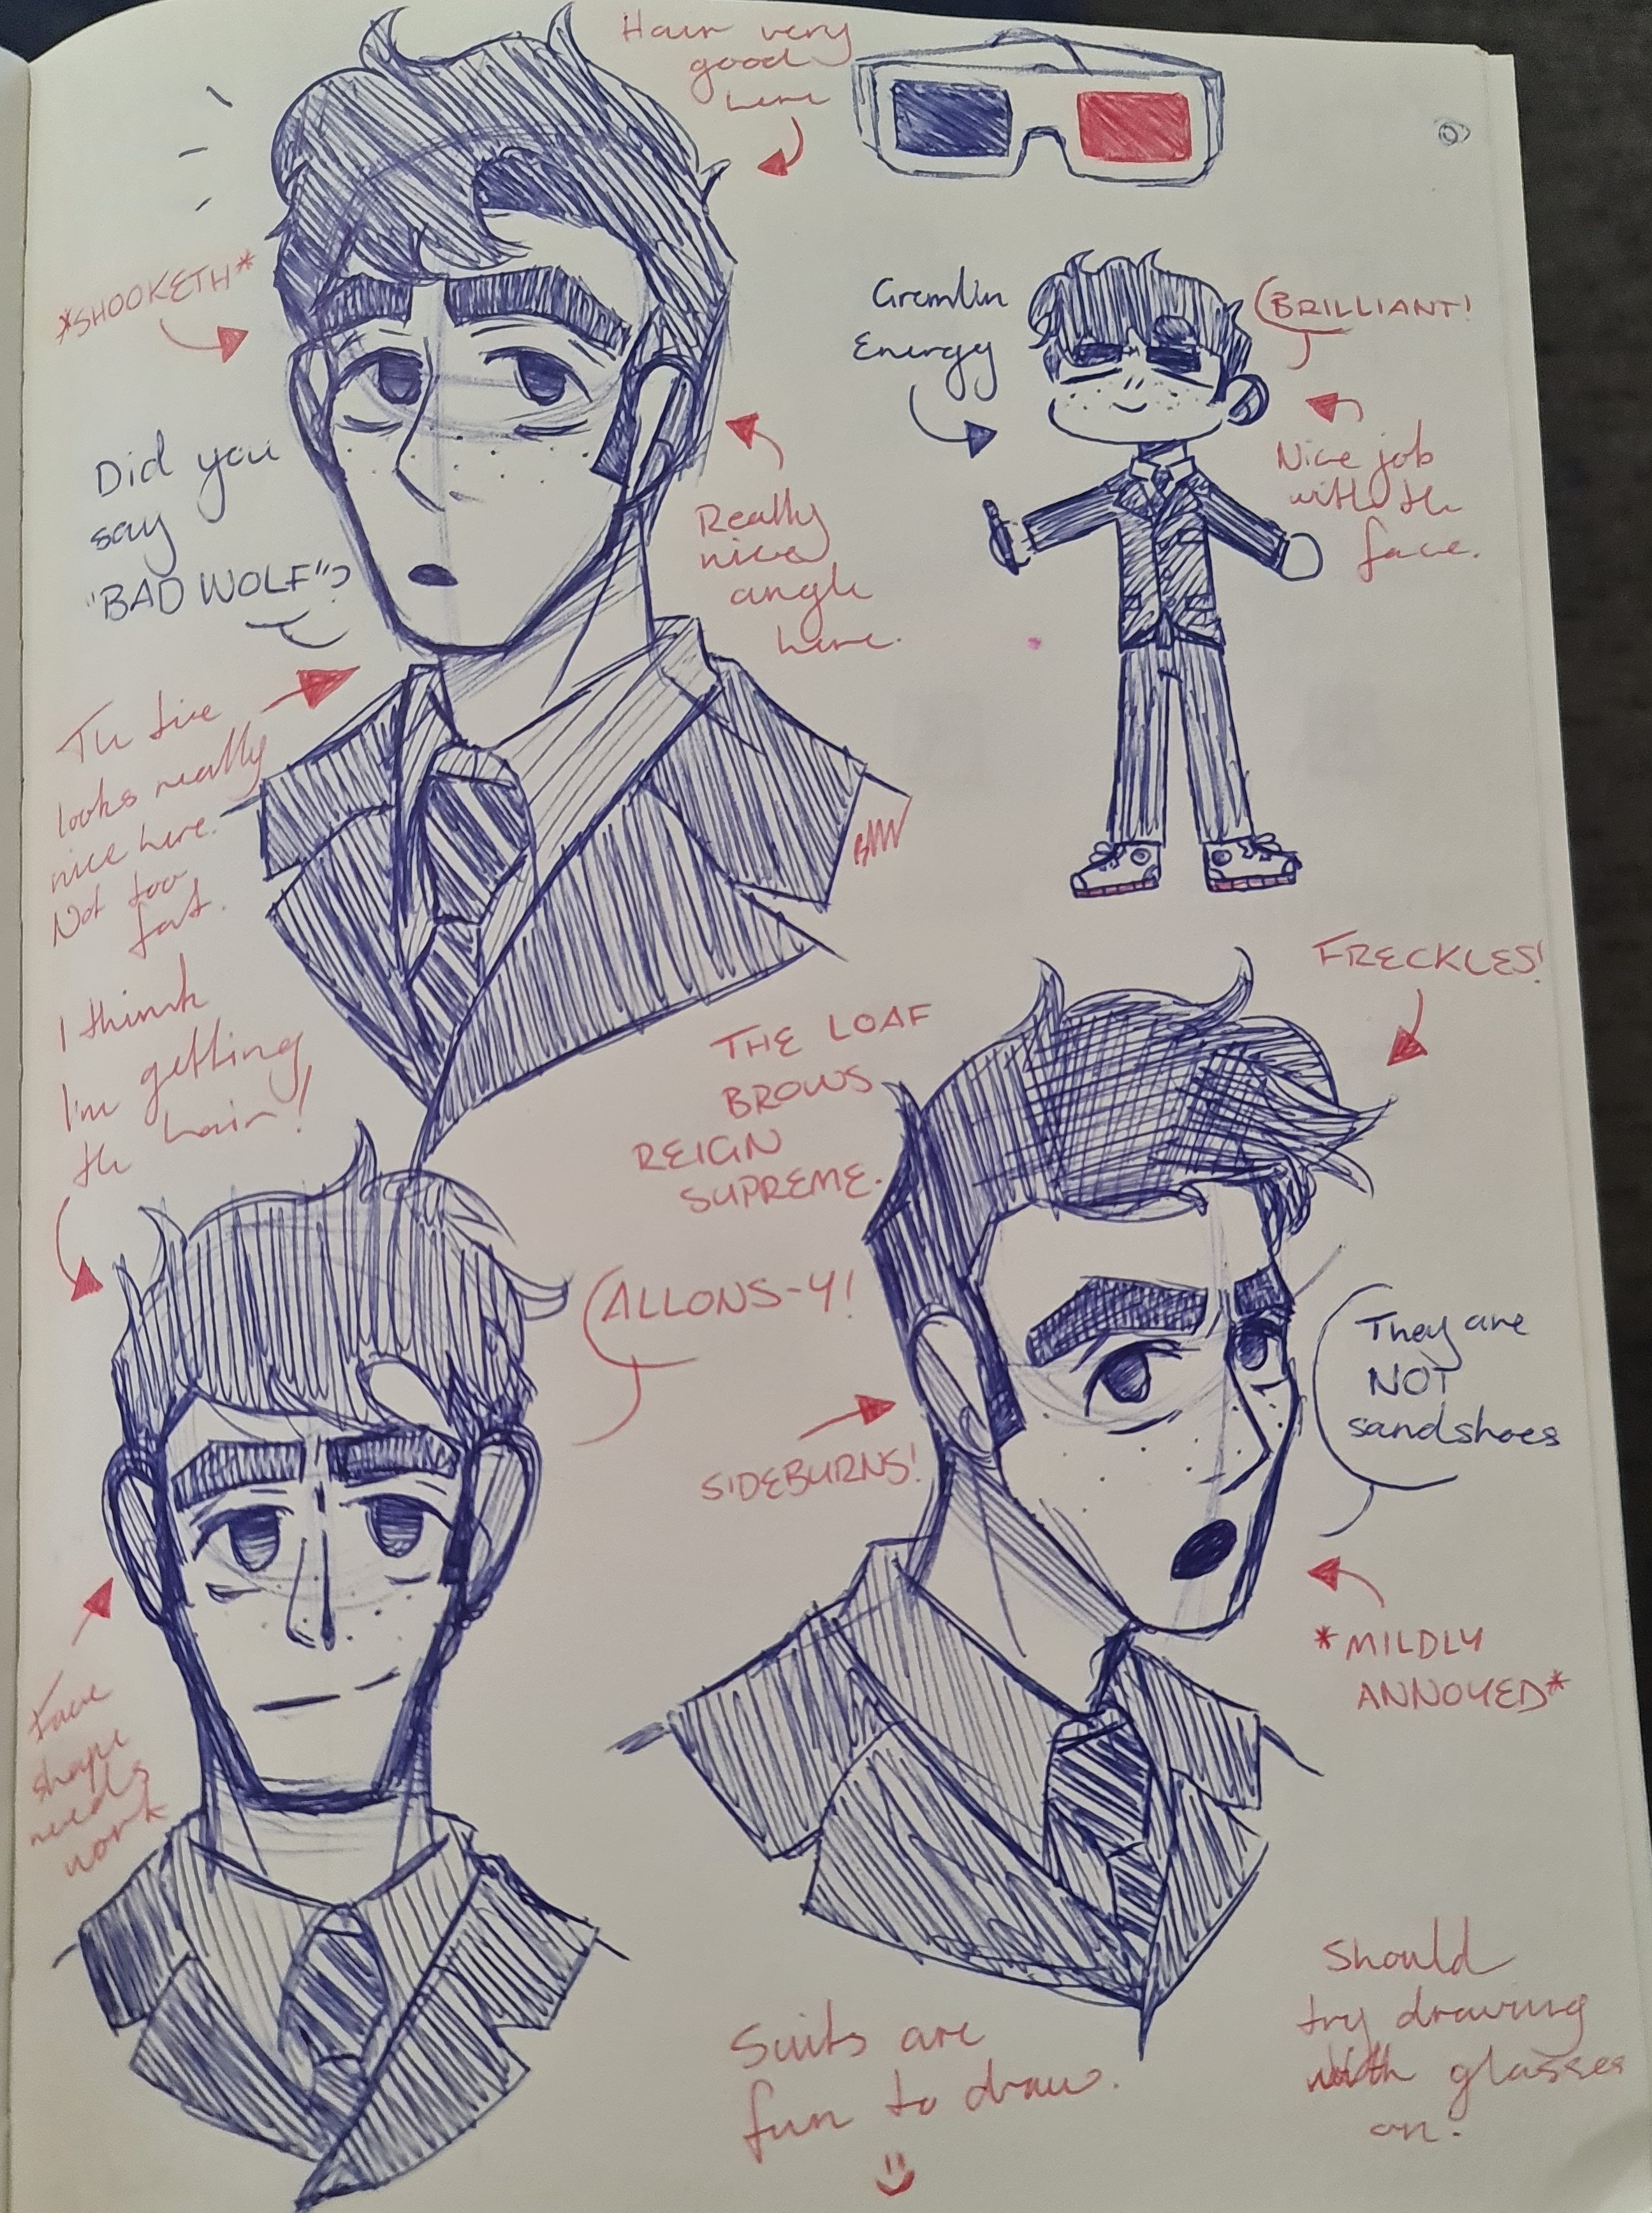 Hair very
good
here
*SHOOKETH*
Did you
say
"BAD WOLF"?
Really
nice
angle
here.
Gremlin
Energy
BRILLIANT!
Nice job
with the
face.
The tie
looks really
nice here.
Not too
fat.
I think
I'm getting
the hair!
THE LOAF
BROWS
REIGN
SUPREME.
FRECKLES!
ALLONS-Y!
SIDEBURNS!
They are
NOT
sandshoes
*MILDLY
ANNOYED*
Face
shape
needs
work
Suits are
fun to draw.
Should
try drawing
with glasses
on.